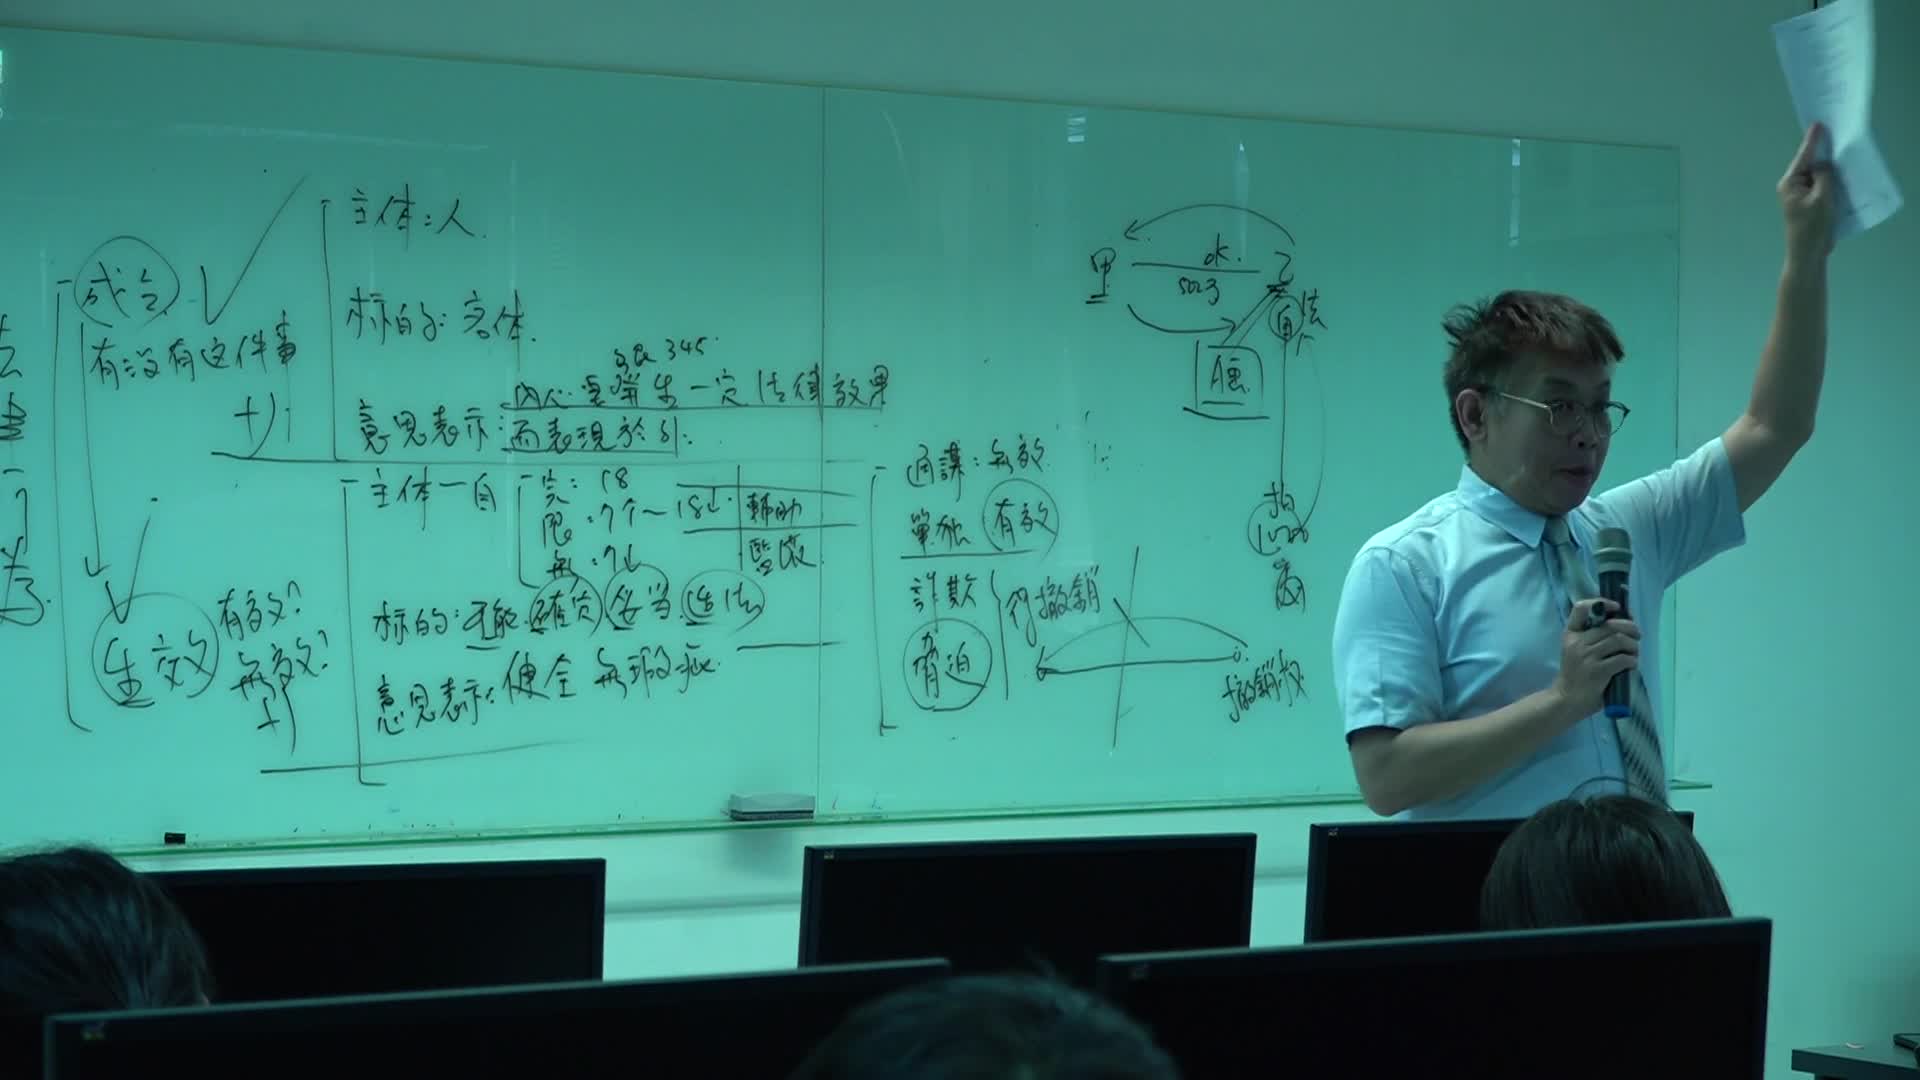 成立
有没有这件事
主体：人.
标的：客体.
民 345
內心要發生一定法律效果
意思表示：而表現於外.
生效
有效?
無效?
主体一自
完：18
限：7个~18↓
無：7↓
輔助
監護
标的：可能.確定 妥当.适法
意思表示：健全 無瑕疵.
通謀：無效
單独 有效
詐欺
脅迫
得撤銷
撤銷权
甲
ok.
乙
自
法